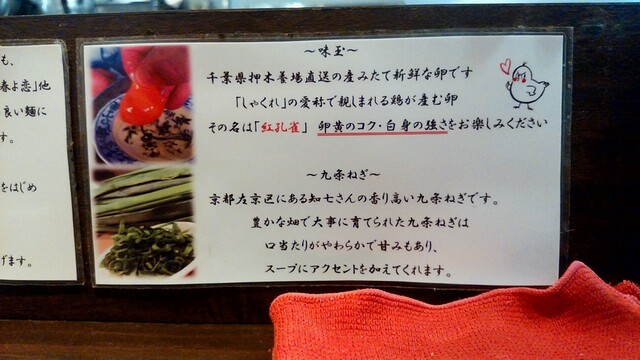 も、
春よ恋」他
良い麺に
す。
をはじめ
げます。
〜味玉〜
千葉県押本養場直送の産みたて新鮮な卵です
「しゃくれ」の愛称で親しまれる鶏が産む卵
その名は「紅孔雀」 卵黄のコク・白身の強さをお楽しみください
〜九条ねぎ〜
京都左京区にある知七さんの香り高い九条ねぎです。
豊かな畑で大事に育てられた九条ねぎは
口当たりがやわらかで甘みもあり、
スープにアクセントを加えてくれます。